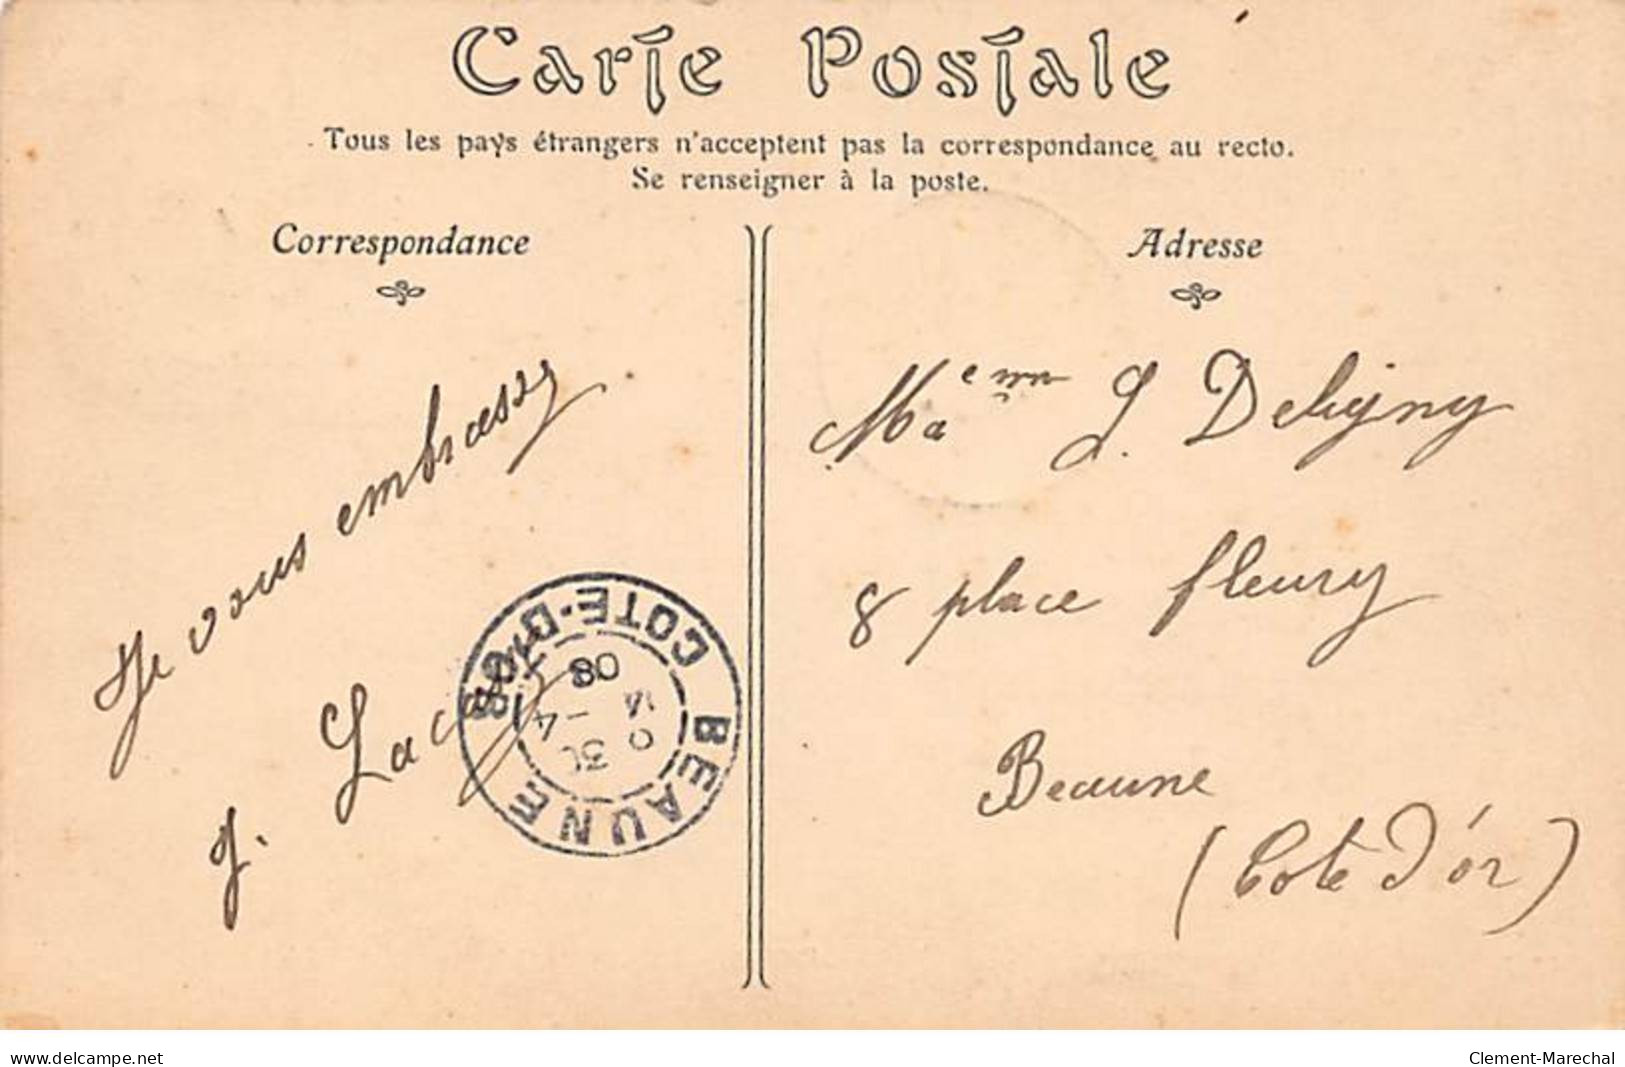 Carte Postale
Tous les pays étrangers n'acceptent pas la correspondance au recto.
Se renseigner à la poste.
Correspondance
Je vous embrasse
J.
Adresse
L. Deligny
8 place fleury
Beaune
(Cote d'or)
BEAUNE
COTE-D'OR
9 30
-4
08
www.delcampe.net
Clement-Marechal